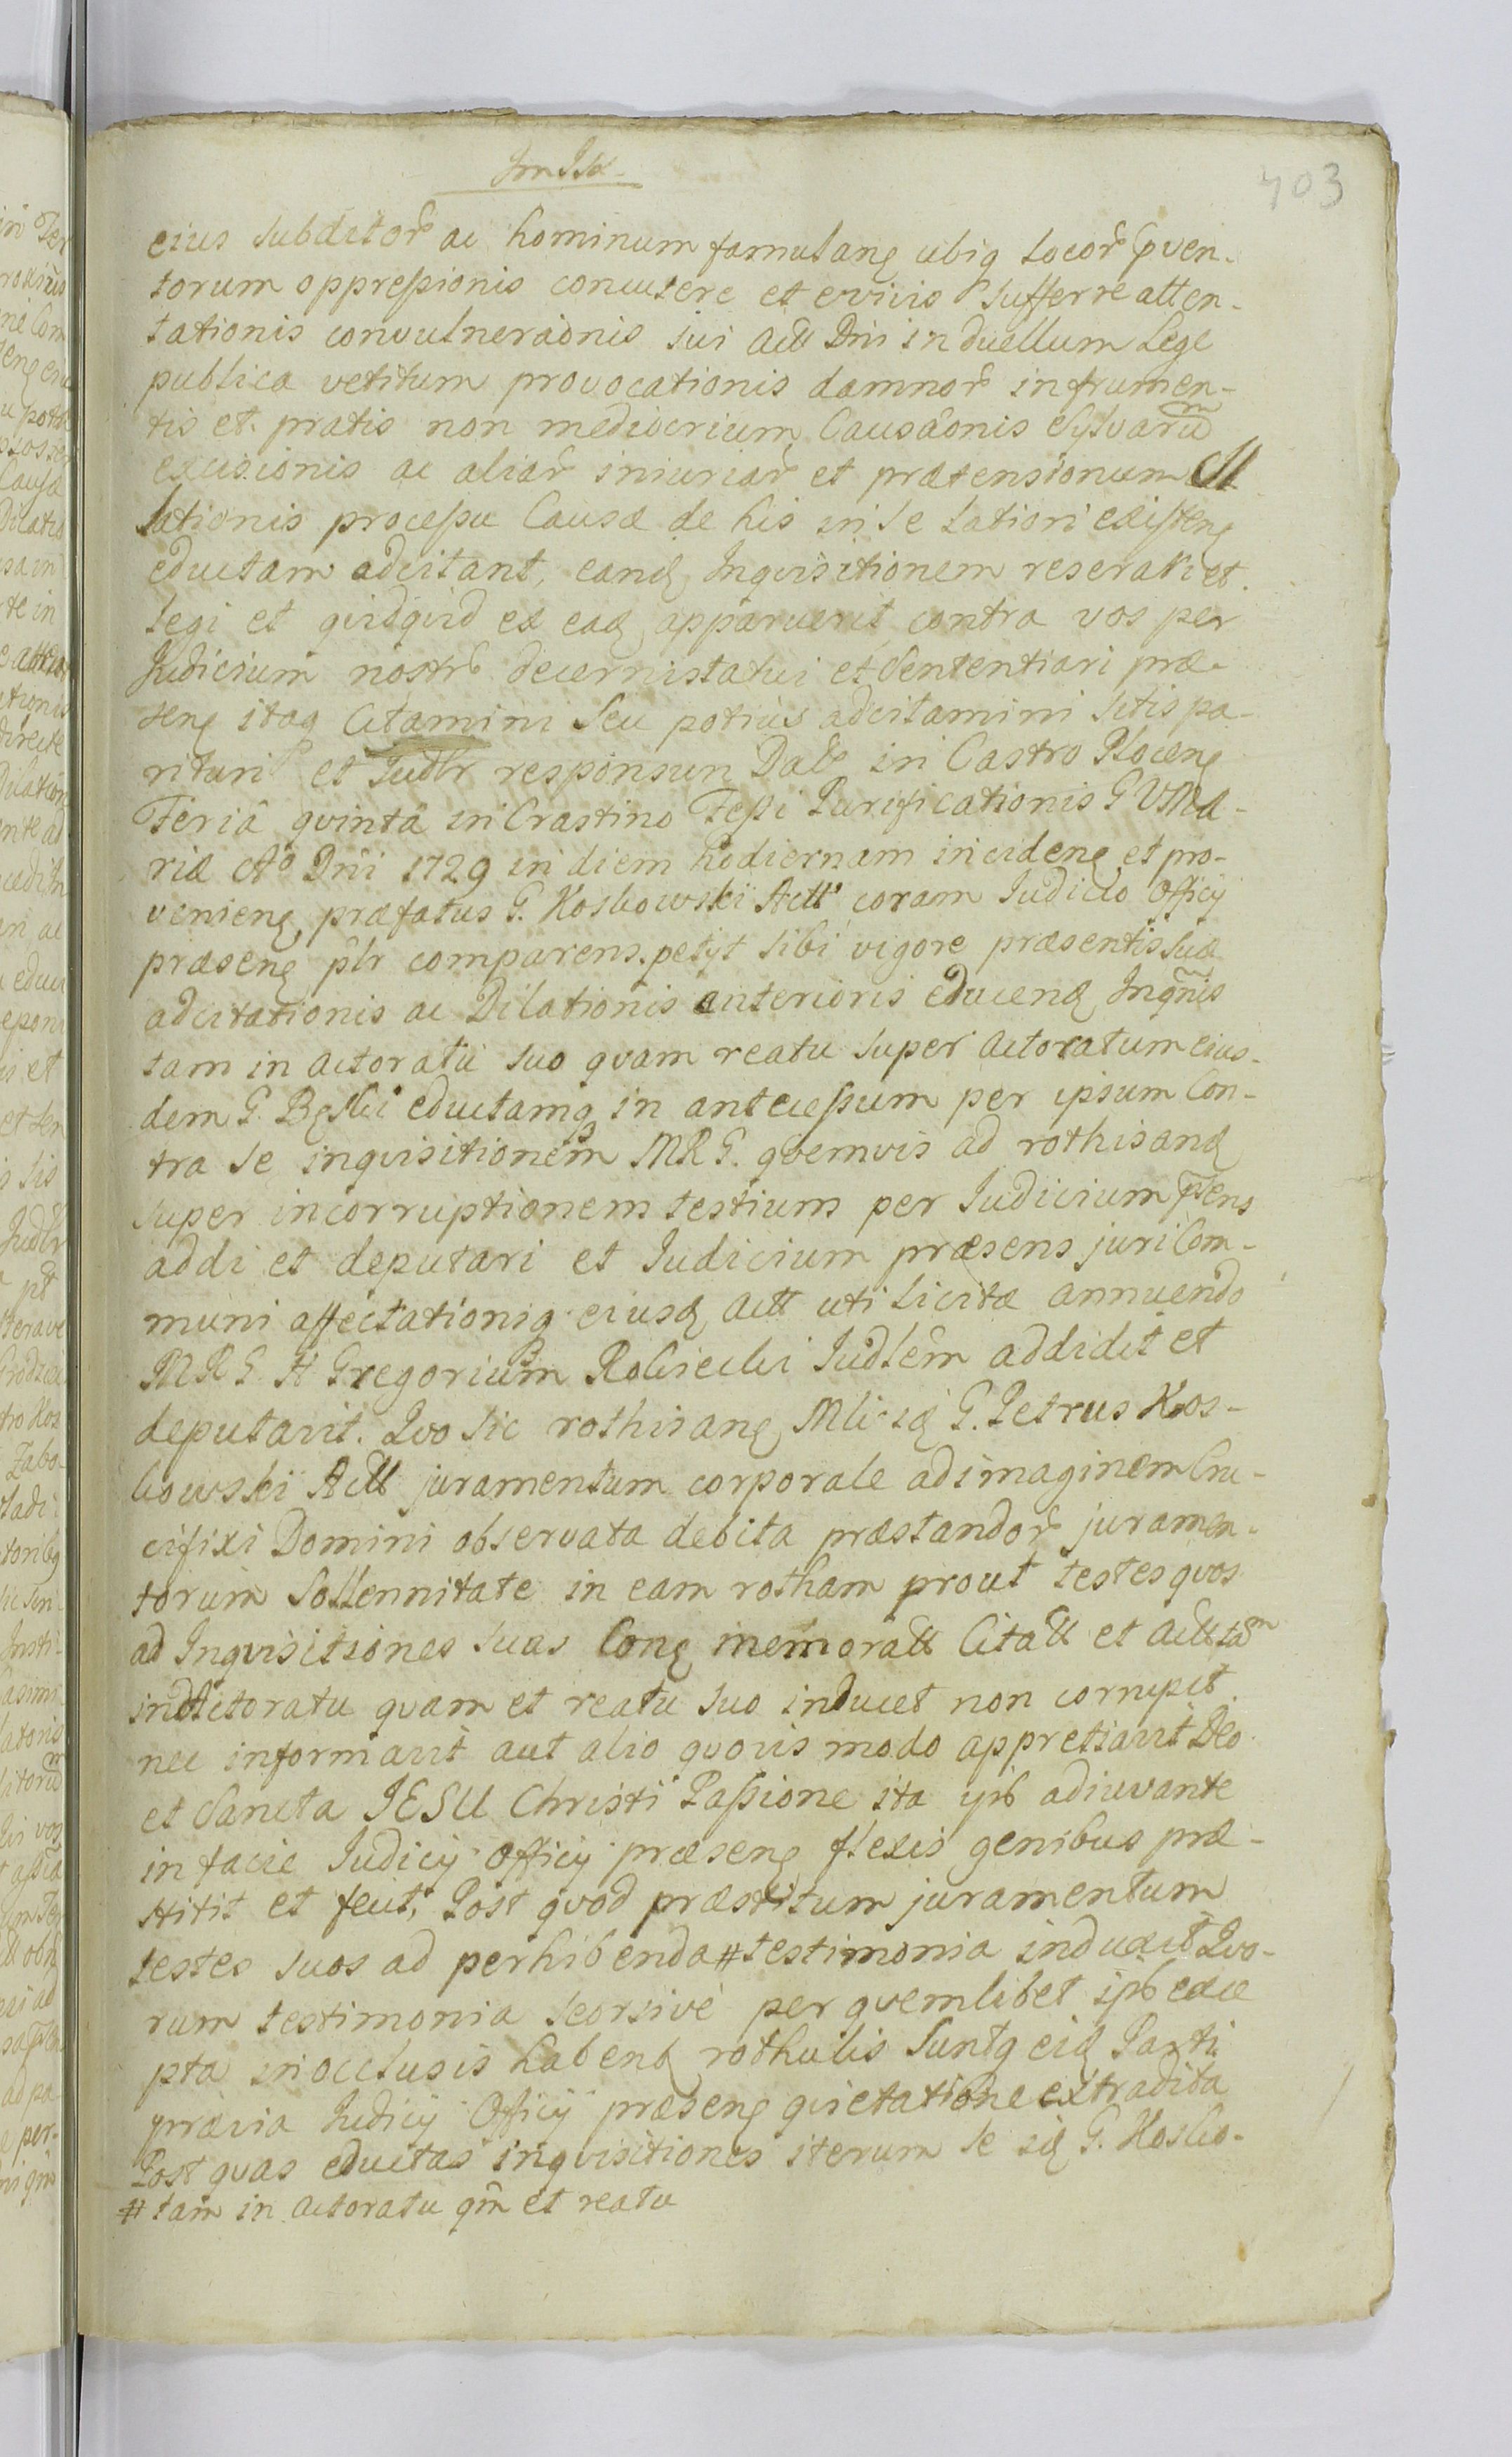 403
eius subditor ac hominum famulanq ubiq locor Conven-
torum oppreſsionis concutere et e vivis sufferre atten-
tationis convulneraonis sui Actt Dni in duellum Lege
publica vetitum provocationis damnor in frumen-
tis et pratis non mediocrium Causaonis Sylvarum
excisionis ac aliar iniuriar et prætensionum
lationis proceſsu Causæ de his in se latiori existenq
eductam adcitant, eandq Inqvisitionem reserari et
legi et qvidqvid ex eadq apparuerit contra vos per
Judicium nostr decerni statui et Sententiari præ-
senq itaq Citamini Seu potius adcitamini sitis pa-
rituri et Judlr responsuri Dat in Castro Plocenq
Feriâ qvintâ in Crastino Feſti Purificationis G V Ma-
riæ Ao Dni 1729 in diem hodiernam incidenq et pro-
venienq præfatus G. Koskowski Actt coram Judicio Officÿ
præsenq plr comparens petÿt sibi vigore præsentis suæ
adcitationis ac Dilationis anterioris educendq Inqnis
tam in actoratu suo qvam reatu super actoratum eius-
dem G. Bęski eductamq in anteceſsum per ipsum Con-
tra se inqvisitionem MRG. qvemvis ad rothisandq
super incorruptionem testium per Judicium pſens
addi et deputari et Judicium præsens juri Com-
muni affectationiq eiusdq Actt uti licitæ annuendo
MRG. H Gregorium Rokicki Judlem addidit et
deputavit. Qvo sic rothisanq Mli idq G. Petrus Kos-
kowski Actt juramentum corporale ad imaginem Cru-
cifixi Domini observata debita præstandor juramen-
torum Sollennitate in eam rotham prout testes qvos
ad Inqvisitiones suas Conq memoratt Citatt et Actt tam
in Actoratu qvam et reatu suo inducet non corrupit
nec informavit aut alio qvovis modo appretiavit Deo
et Sancta JESU Christi Paſsione ita ipſo adiuvante
in facie Judicÿ Officÿ præsenq flexis genibus præ-
stitit et fecit, Post qvod præstitum juramentum
testes suos ad perhibenda # testimonia induxit Qvo-
rum testimonia seorsive per qvemlibet ipſo exce
pta in occlusis habentq rothulis suntq eidq Parti
prævia Judicÿ Officÿ præsenq qvietatione extradita
Post qvas eductas inqvisitiones iterum se idq G. Kosko-
# tam in actoratu qm et reatu